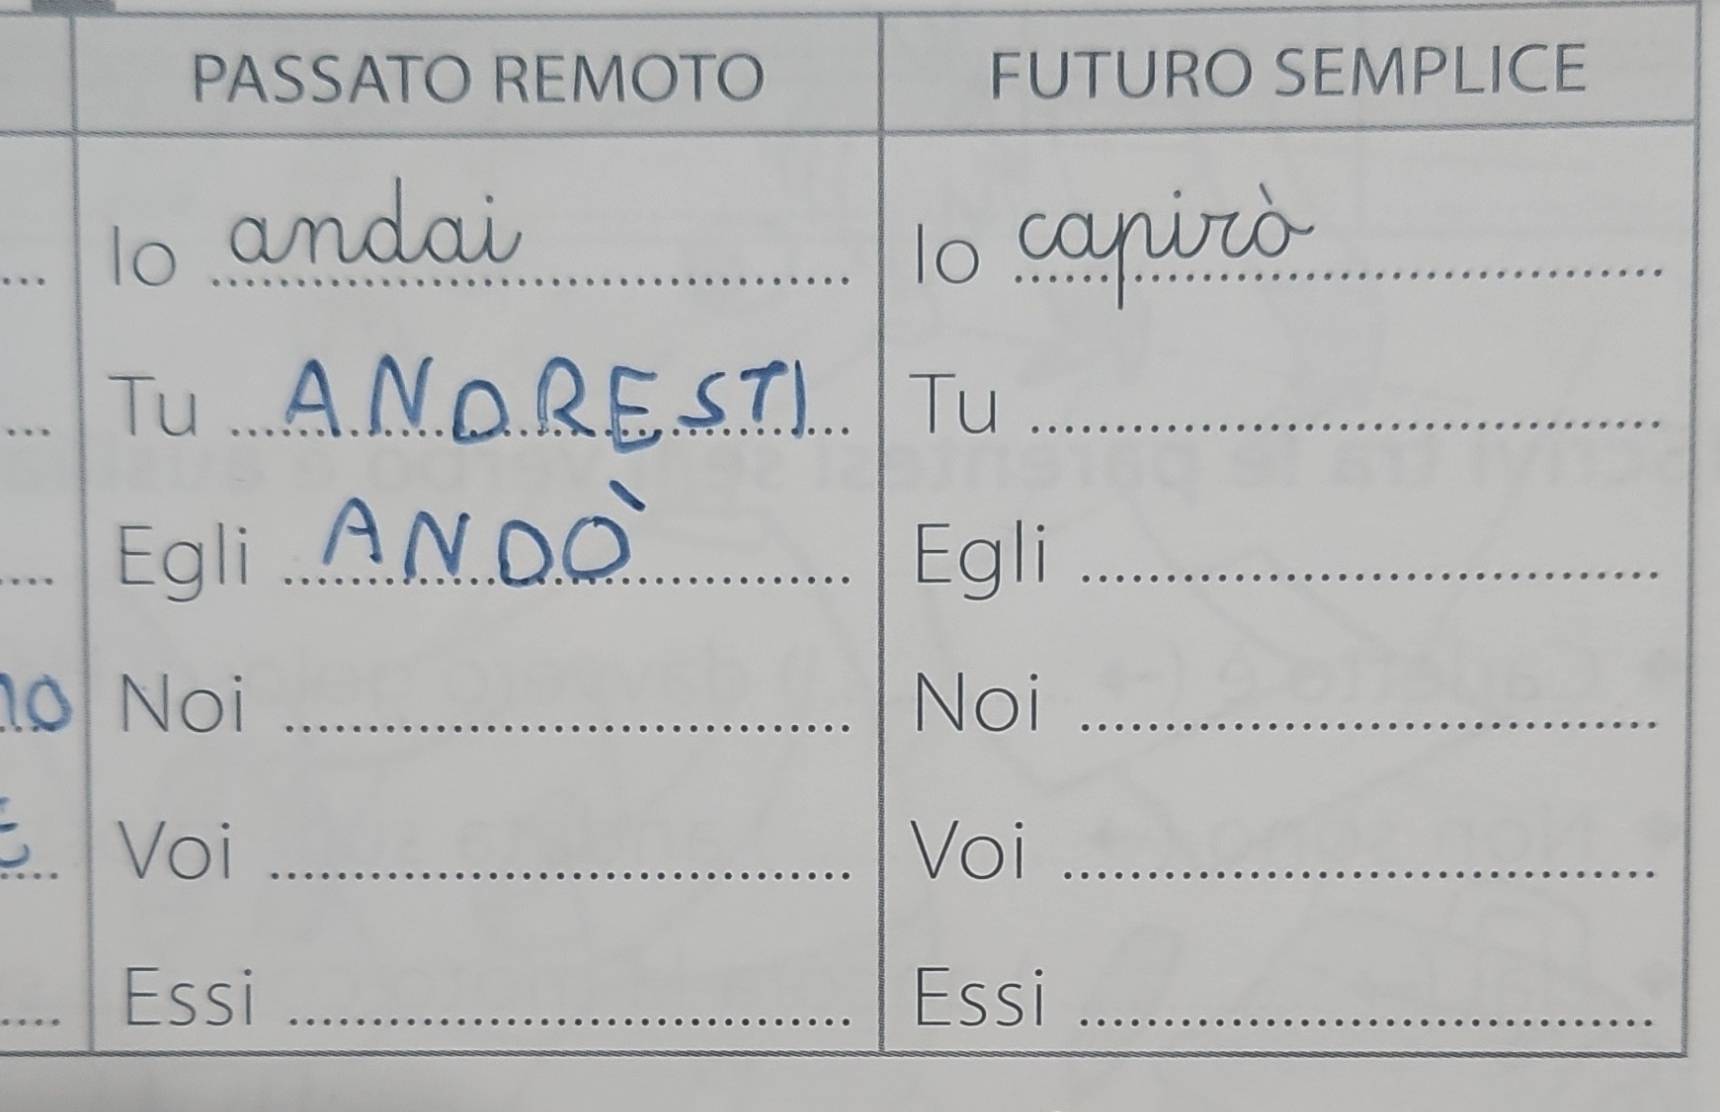 PASSATO REMOTO FUTURO SEMPLICE
... Io andai Io capirò
... Tu ANDRESTI Tu
... Egli ANDÒ Egli
NO Noi Noi
Voi Voi
Essi Essi